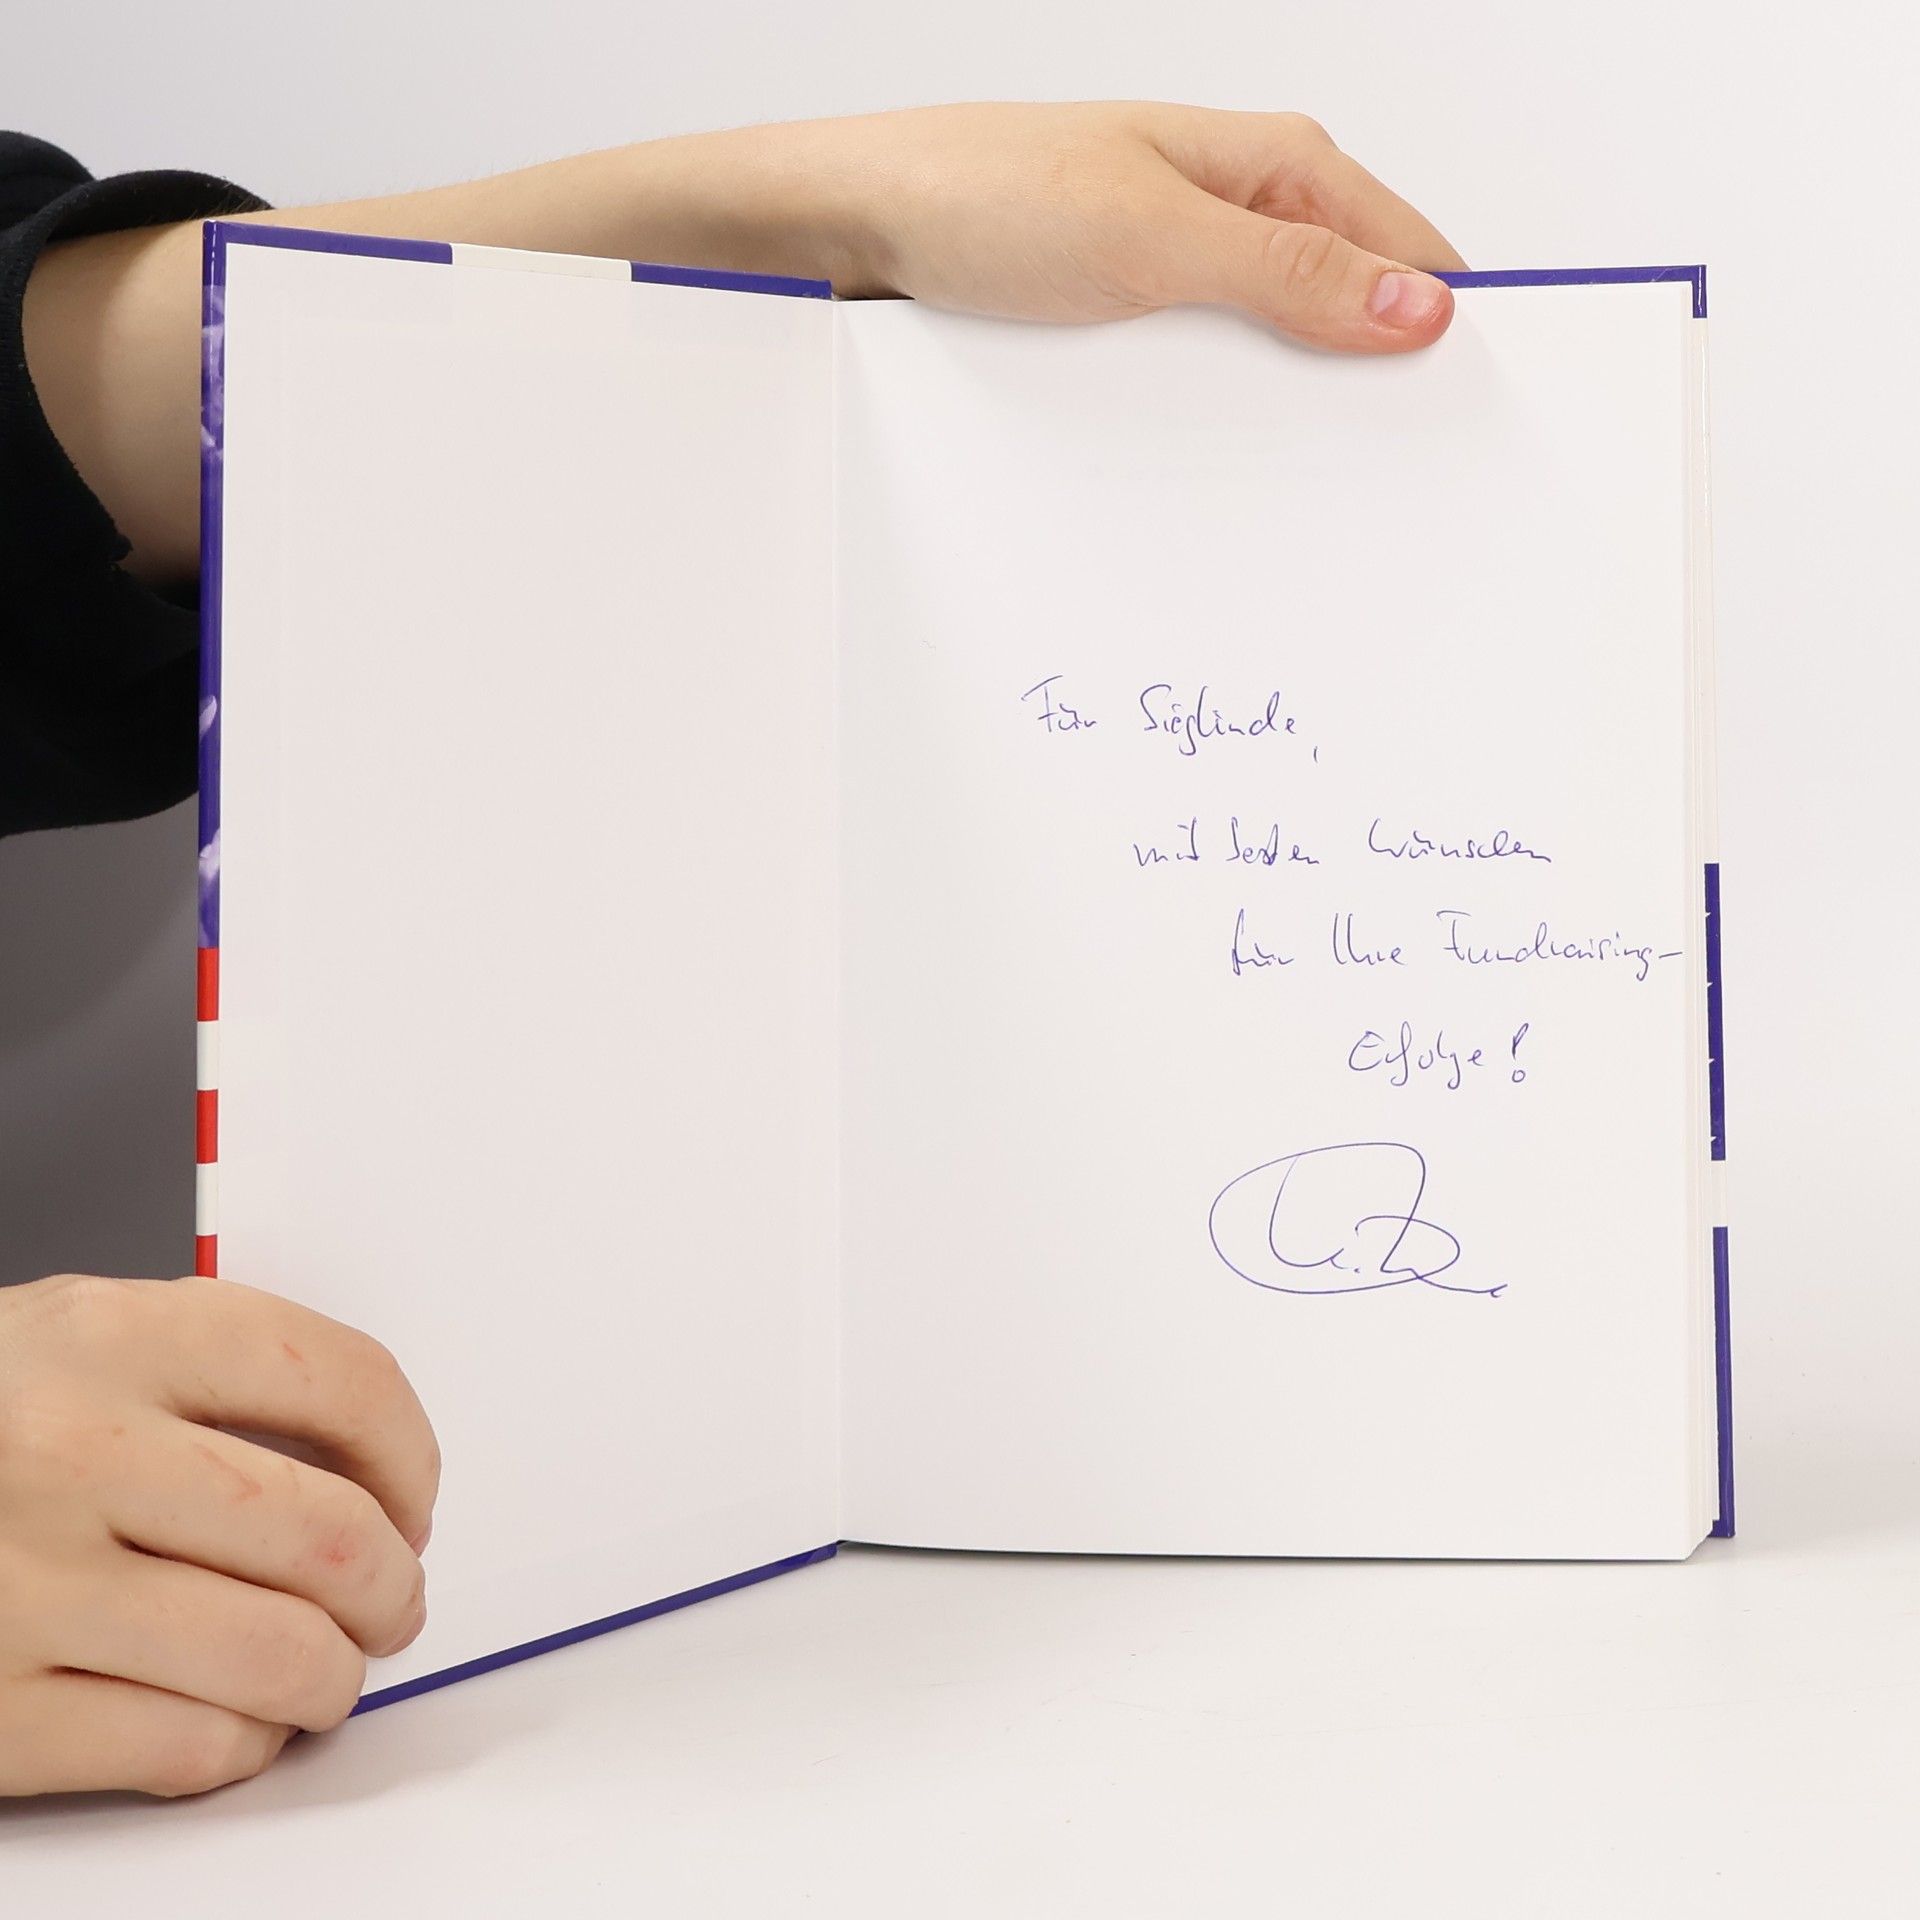 Für Sieglinde,
mit besten Wünschen
für Ihre Fundraising-
Erfolge!